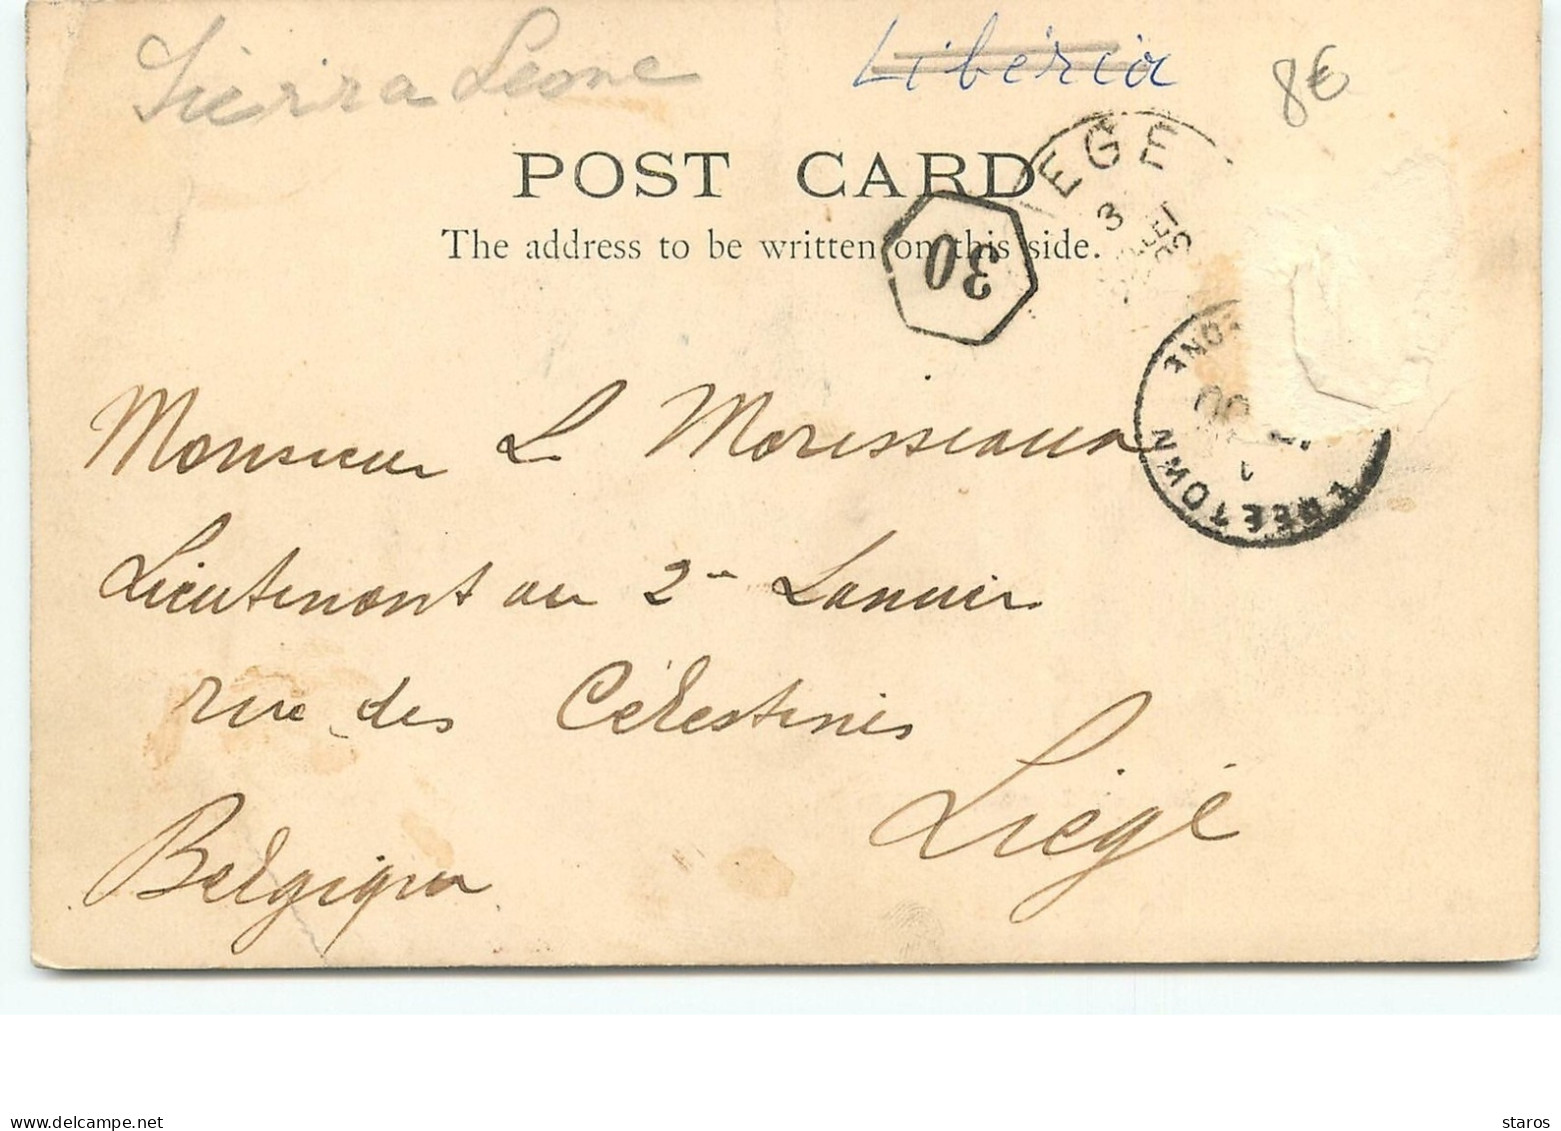 Sierra Leone Libéria 8€
POST CARD
The address to be written on this side.
30
IEGE
3
FREETOWN
Monsieur L. Morisseaux
Lieutenant au 2e Lancier
rue des Célestines
Liège
Belgique
www.delcampe.net staros